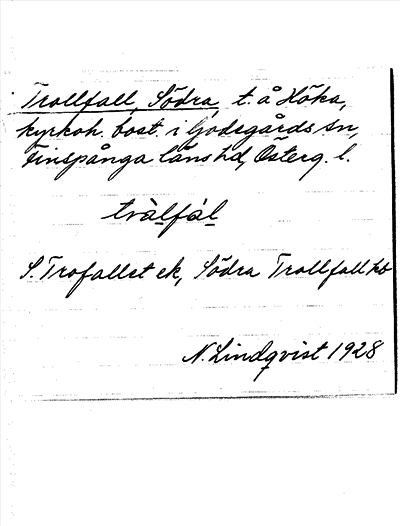 Trollfall, Södra, t. å Höka,
kyrkoh. bost. i Godegårds sn,
Finspånga läns hd, Österg. l.
tvàlfál
S. Trofallet ek, Södra Trollfall hb
N. Lindqvist 1928